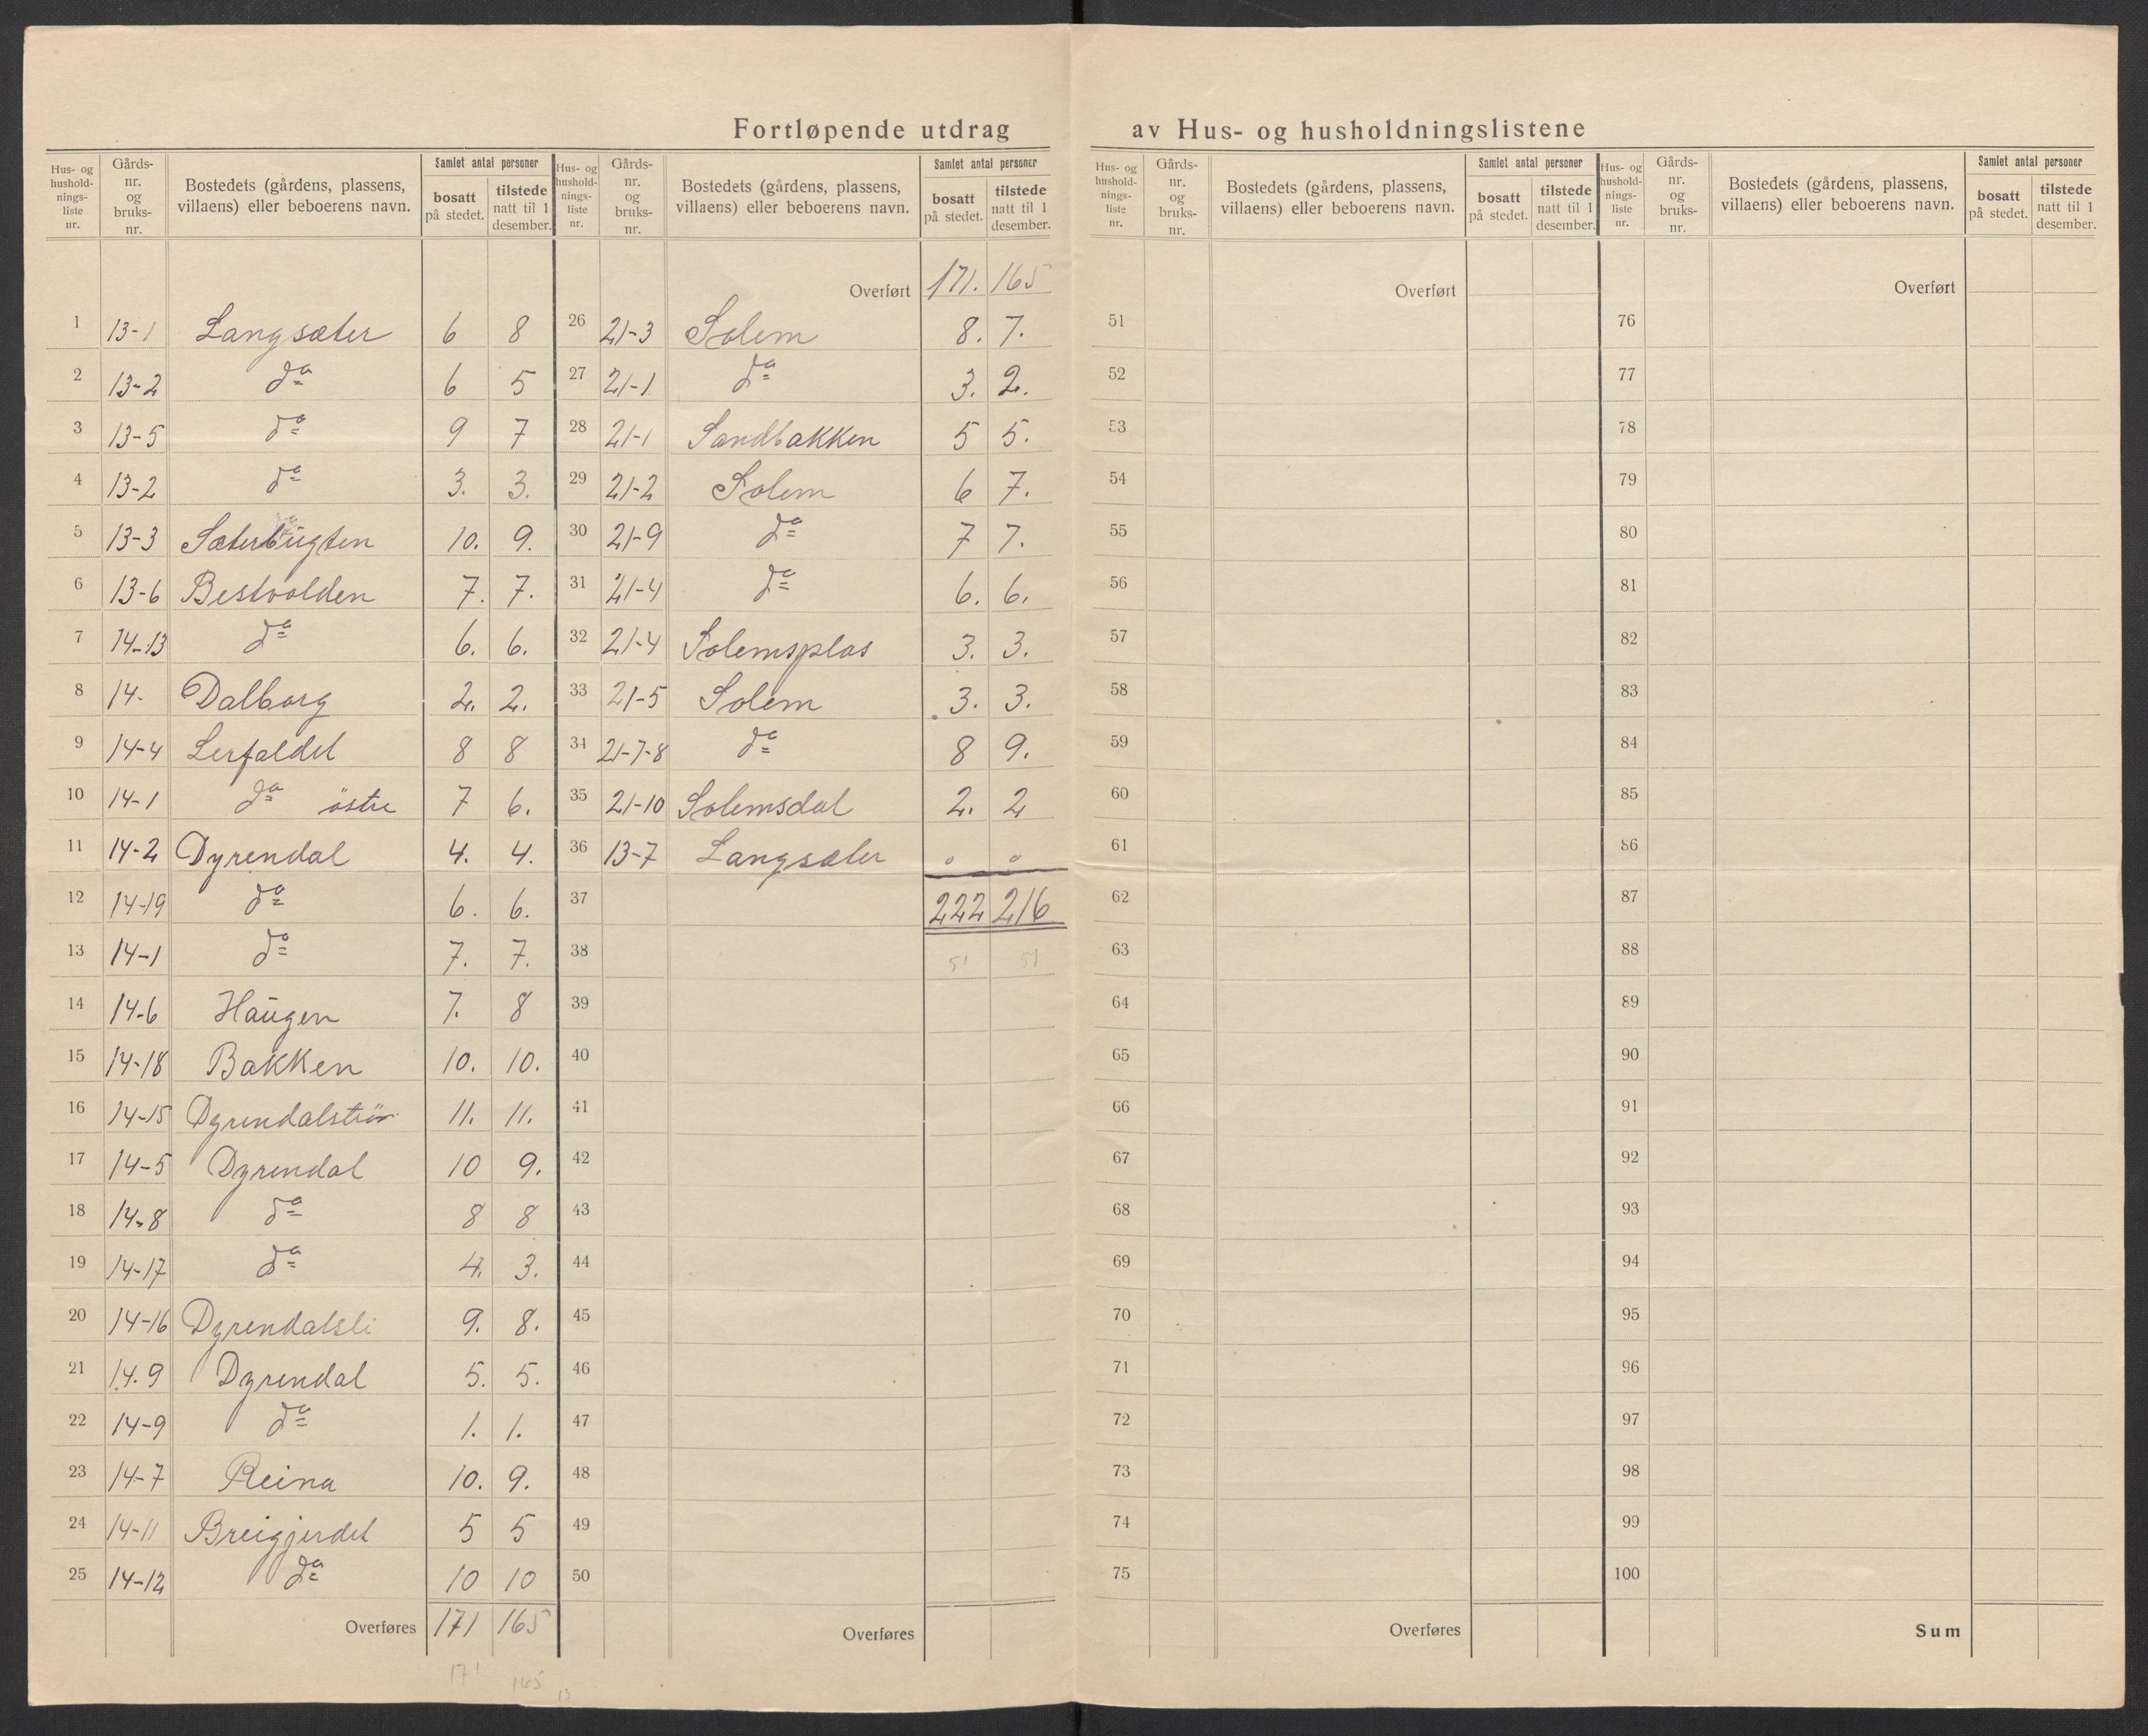 Fortløpende utdrag av Hus- og husholdningslistene
Hus- og husholdnings-liste nr. | Gårds-nr. og bruks-nr. | Bostedets (gårdens, plassens, villaens) eller beboerens navn. | Samlet antal personer bosatt på stedet. | tilstede natt til 1 desember.
1 13-1 Langsæter 6 8
2 13-2 dª 6 5
3 13-5 dª 9 7
4 13-2 dª 3. 3.
5 13-3 Sæterbugten 10. 9.
6 13-6 Bestvolden 7. 7.
7 14-13 dª 6. 6.
8 14- Dalborg 2. 2.
9 14-4 Lerfaldet 8 8
10 14-1 dª östre 7 6.
11 14-2 Dyrendal 4. 4.
12 14-19 dª 6. 6.
13 14-1 dª 7. 7.
14 14-6 Haugen 7. 8
15 14-18 Bakken 10. 10.
16 14-15 Dyrendalströ 11. 11.
17 14-5 Dyrendal 10 9.
18 14-8 dª 8 8
19 14-17 dª 4. 3.
20 14-16 Dyrendalsli 9. 8.
21 14.9 Dyrendal 5. 5.
22 14-9 dª 1. 1.
23 14-7 Reina 10. 9.
24 14-11 Breigjerdet 5 5
25 14-12 dª 10 10
Overføres 171 165
171 165
13
Hus- og husholdnings-liste nr. | Gårds-nr. og bruks-nr. | Bostedets (gårdens, plassens, villaens) eller beboerens navn. | Samlet antal personer bosatt på stedet. | tilstede natt til 1 desember.
Overført 171. 165
26 21-3 Solem 8. 7.
27 21-1 dª 3. 2.
28 21-1 Sandbakken 5 5.
29 21-2 Solem 6 7.
30 21-9 dª 7 7.
31 21-4 dª 6. 6.
32 21-4 Solemsplas 3. 3.
33 21-5 Solem 3. 3.
34 21-7-8 dª 8 9.
35 21-10 Solemsdal 2. 2
36 13-7 Langsæter 0 0
37 222 216
38 51 51
39
40
41
42
43
44
45
46
47
48
49
50
Overføres
Hus- og husholdnings-liste nr. | Gårds-nr. og bruks-nr. | Bostedets (gårdens, plassens, villaens) eller beboerens navn. | Samlet antal personer bosatt på stedet. | tilstede natt til 1 desember.
Overført
51
52
53
54
55
56
57
58
59
60
61
62
63
64
65
66
67
68
69
70
71
72
73
74
75
Overføres
Hus- og husholdnings-liste nr. | Gårds-nr. og bruks-nr. | Bostedets (gårdens, plassens, villaens) eller beboerens navn. | Samlet antal personer bosatt på stedet. | tilstede natt til 1 desember.
Overført
76
77
78
79
80
81
82
83
84
85
86
87
88
89
90
91
92
93
94
95
96
97
98
99
100
Sum